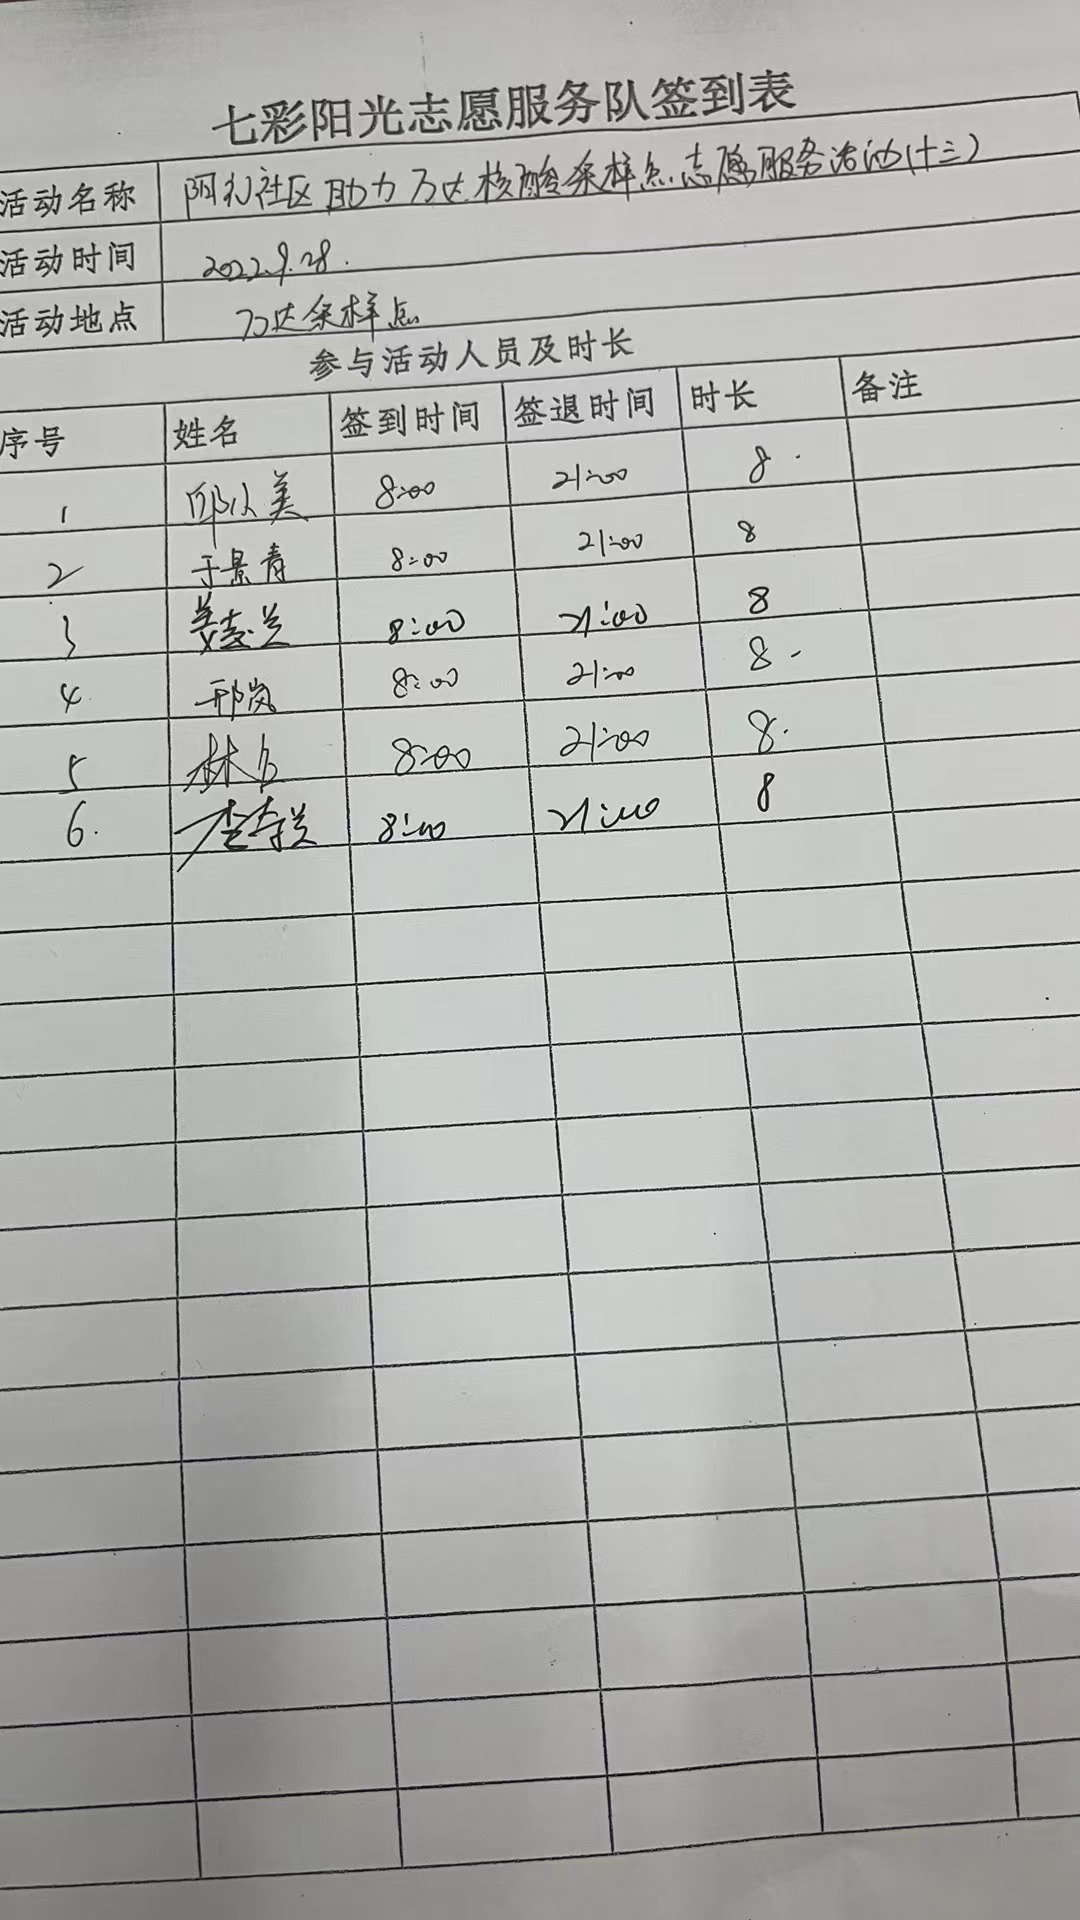 七彩阳光志愿服务队签到表
活动名称 阿礼社区助力万达核酸采样点志愿服务活动(十三)
活动时间 2022.9.28.
活动地点 万达采样点
参与活动人员及时长
序号 姓名 签到时间 签退时间 时长 备注
1 邱以美 8:00 21:00 8.
2 于景青 8:00 21:00 8
3 8:00 21:00 8
4. 邢岚 8:00 21:00 8.
5 林 8:00 21:00 8.
6. 8:00 21:00 8